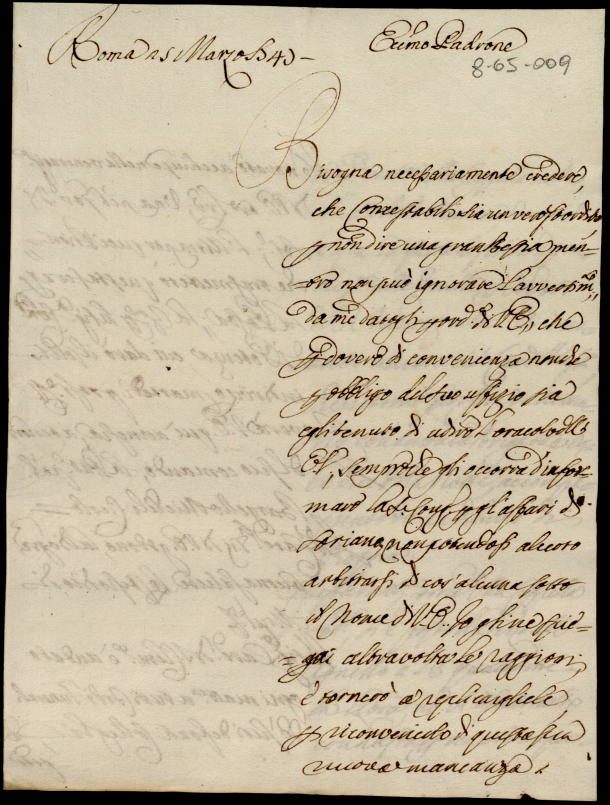 Roma 25 Marzo 1743
Ec.mo Padrone
8-65-009
Bisogna necessariamente credere,
che Contestabili sia un vero stordito
p non dire una gran bestia, men-
tre non può ignorare l'avvertim.to
da me datogli p ord.e di V.E., che
p dovere di convenienza non che
p obbligo del suo uffizio sia
egli tenuto di udire l'oracolo dell'
E.V., sempre che gli occorra d'infor-
mare la S. Cong. p gl'affari di
Soriano, non potendosi al certo
arbitrarsi di cos'alcuna sotto
il Nome di V.E. Io gli ne spie-
gai altra volta le raggioni,
e tornerò a replicargliele,
p riconvenirlo di questa sua
nuova mancanza.